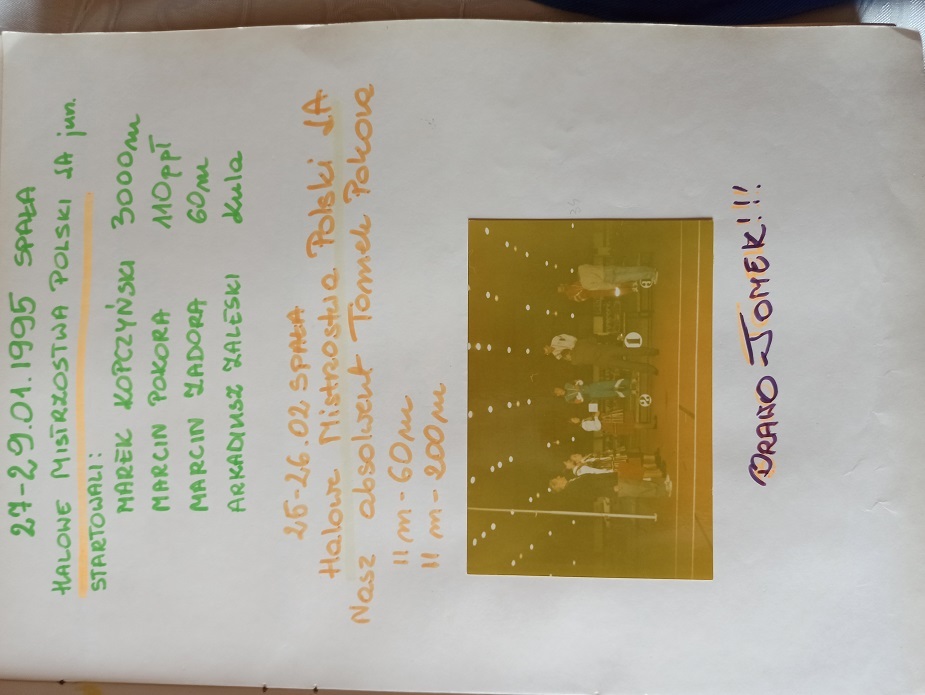 27-29.01.1995 SPAŁA
HALOWE MISTRZOSTWA POLSKI LA jun.
STARTOWALI:
MAREK KOPCZYŃSKI 3000m
MARCIN POKORA 110ppł
MARCIN ZADORA 60m
ARKADIUSZ ZALESKI kula
25-26.02 SPAŁA
Halowe Mistrostwa Polski LA
Nasz absolwent Tomek Pokora
II m - 60m
II m - 200m
2 1 3
BRAWO TOMEK!!!